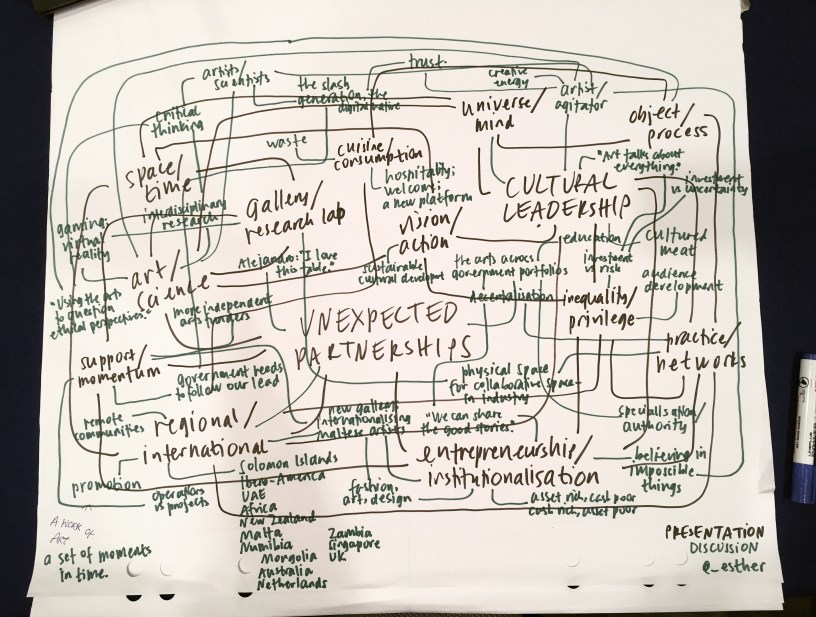 artists/
scientists
trust
creative
energy
artist/
agitator
the slash
generation, the
digital native
universe/
mind
object/
process
critical
thinking
waste
cuisine/
consumption
"Art talks about
everything."
investment
vs uncertainty
space/
time
hospitality:
welcome:
a new platform
CULTURAL
LEADERSHIP
interdisciplinary
research
gallery/
research lab
vision/
action
gaming:
virtual
reality
education
cultured
meat
Alejandro: "I love
this table."
sustainable
cultural developmt
the arts across
government portfolios
investment
vs risk
audience
development
art/
science
"Using the arts
to question
ethical perspectives."
more independent
arts funders
decentralisation
inequality/
privilege
UNEXPECTED
PARTNERSHIPS
practice/
networks
support/
momentum
government needs
to follow our lead
physical space
for collaborative space
in industry
remote
communities
regional/
international
new gallery
internationalising
maltese artists
"We can share
the good stories."
specialisation/
authority
entrepreneurship/
institutionalisation
believing in
impossible
things
promotion
operations
vs projects
Solomon Islands
Ibero-America
UAE
Africa
New Zealand
Malta
Numibia
Mongolia
Australia
Netherlands
Zambia
Singapore
UK
fashion,
art, design
asset rich, cash poor
cash rich, asset poor
A WORK of
ART
a set of moments
in time.
PRESENTATION
DISCUSSION
@_esther